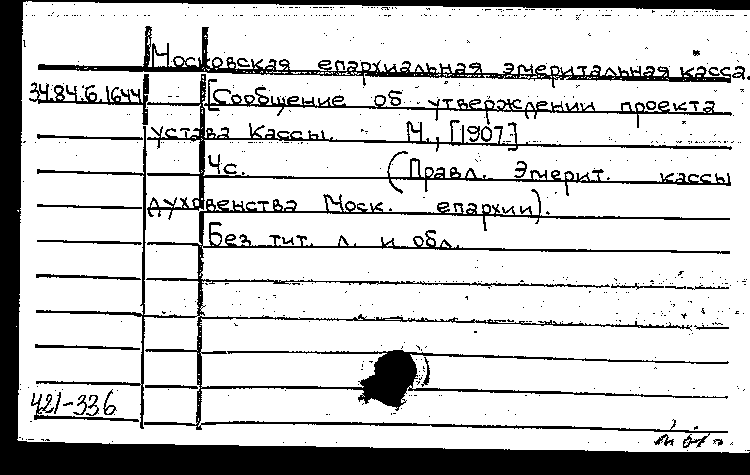 Московская епархиальная эмеритальная касса.
34.84.6.1644 [Сообщение об утверждении проекта
устава Кассы. М., [1907]
4с. (Правл. Эмерит. кассы
духовенства Моск. епархии).
Без тит. л. и обл.
421-336